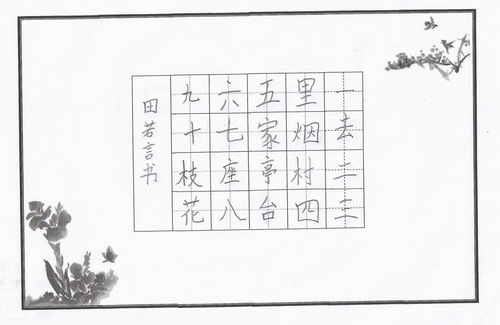 一去二三
里烟村四
五家亭台
六七座八
九十枝花
田若言书